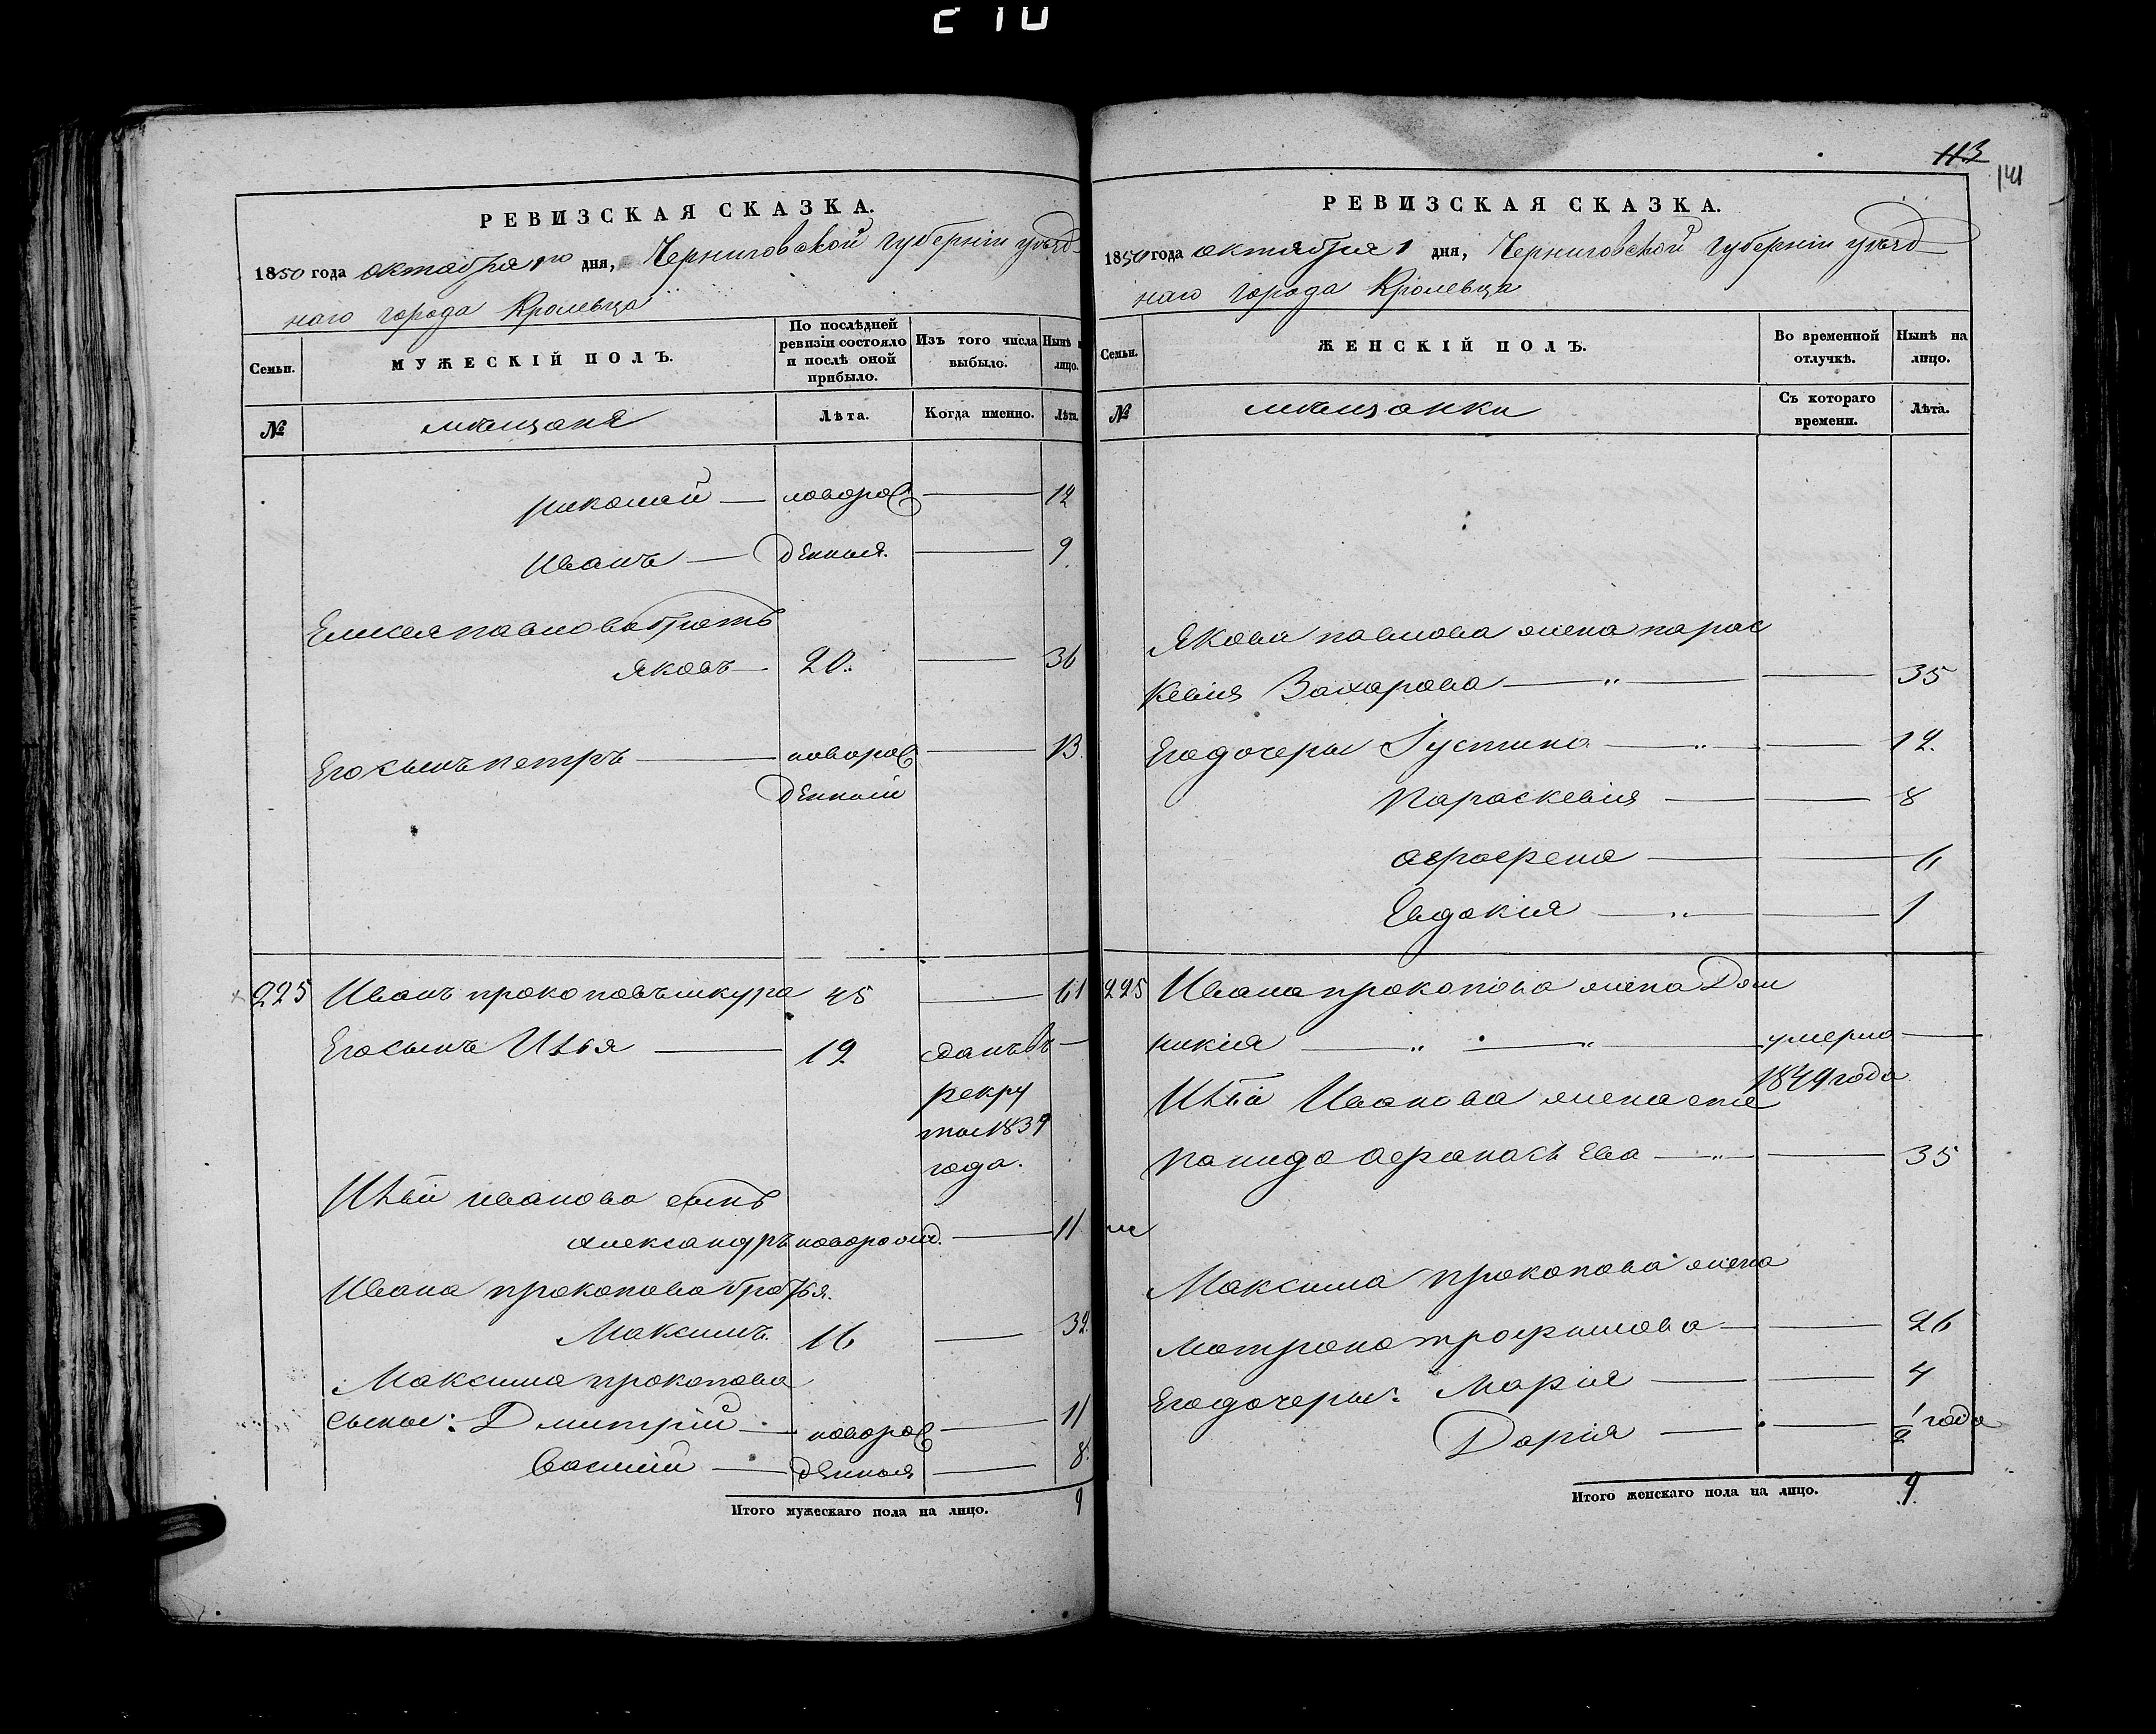 210
РЕВИЗСКАЯ СКАЗКА.
1850 года октября 1го дня, Черниговской губерніи уѣзд
наго города Кролевца
Семьи.
МУЖЕСКІЙ ПОЛЪ.
По послѣдней ревизіи состояло и послѣ оной прибыло.
Изъ того числа выбыло.
Нынѣ на лицо.
№
мѣщане
Лѣта.
Когда именно.
Лѣта.
николай — новорож — 12
Иванъ — денныя. — 9
Елисея павлова братъ
яковъ — 20. — 36
Его сынъ петръ — новорож — 13.
денный
225 Иванъ прокоповъ шкура 45 — 61
Его сынъ Илья — 19 сданъ въ —
рекру
ты 1839
года.
Ильи иванова сынъ
александръ новорожд. — 11
Ивана прокопова братья.
Максимъ 16 — 32.
Максима прокопова
сыны: Дмитрій — новорож — 11
Василій — денныя — 8.
Итого мужескаго пола на лицо. 9
113
141
РЕВИЗСКАЯ СКАЗКА.
1850 года октября 1 дня, Черниговской губерніи уѣзд
наго города Кролевца
Семьи.
ЖЕНСКІЙ ПОЛЪ.
Во временной отлучкѣ.
Нынѣ на лицо.
№
мѣщанки
Съ котораго времени.
Лѣта.
Якова павлова жена парас
кевия Захарова — " — 35
Его дочеры Іустина — " — 12.
Параскевия — 8
афросения — 6
Евдокія — " — 1
225 Ивана прокопова жена Дом
никия — " — " — умерла —
1849 года
Ильи Иванова жена сте
панида афанасьева — " — 35
Максима прокопова жена
матрона трофимова — 26
Его дочеры: Марія — 4
Дарія — 1/2 года
Итого женскаго пола на лицо. 9.